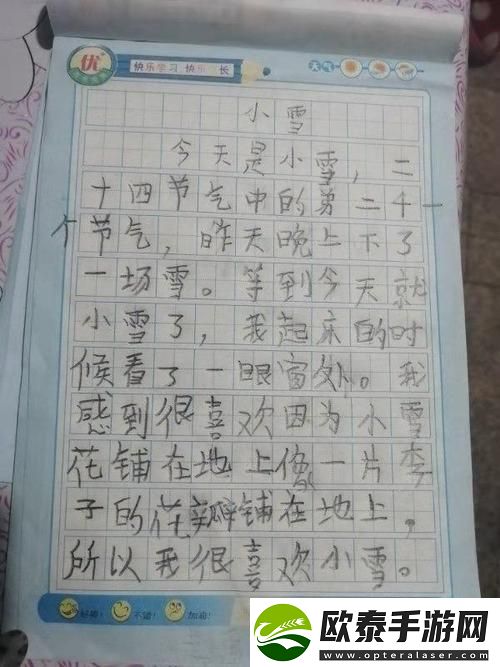 优
快乐学习 快乐 长
天气
小雪
今天是小雪，二
十四节气中的第二十一
个节气，昨天晚上下了
一场雪。等到今天就
小雪了，我起床的时
候看了一眼窗外。我
感到很喜欢因为小雪
花铺在地上像一片李
子的花瓣铺在地上，
所以我很喜欢小雪。
好棒！ 不错！ 加油！
欧泰手游网
www.opticalaser.com